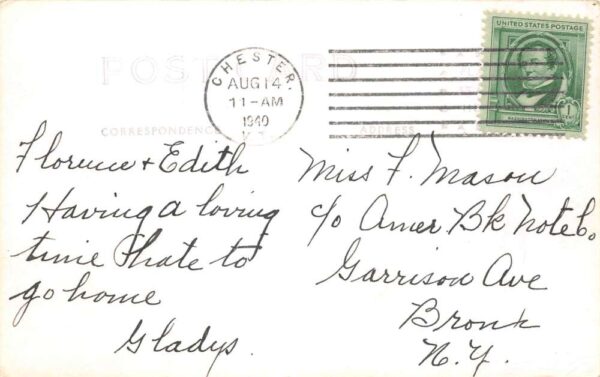 UNITED STATES POSTAGE
POST CARD
CHESTER.
AUG 14
11-AM
1940
V.T.
1
CORRESPONDENCE
ADDRESS
Florence + Edith
Having a loving
time I hate to
go home
Gladys.
Miss F. Mason
c/o Amer Bk Note Co.
Garrison Ave
Bronx
N.Y.